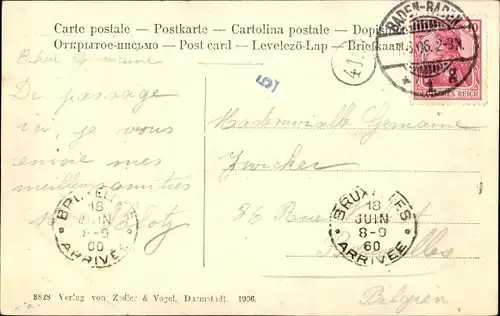 Carte postale — Postkarte — Cartolina postale — Dopis
Открытое-письмо — Post card — Levelező-Lap — Briefkaart
BADEN-BADEN
06. 2-3N.
DEUTSCHES REICH
41.
Chère Germaine
De passage
ici, je vous
envoie mes
meilleures amitiés
Mademoiselle Germaine
Zwicker
86 Rue
Bruxelles
Belgien
BRUXELLES
18
JUIN
8-9
60
ARRIVÉE
BRUXELLES
18
JUIN
8-9
60
ARRIVÉE
8828 Verlag von Zedler & Vogel, Darmstadt. 1906.